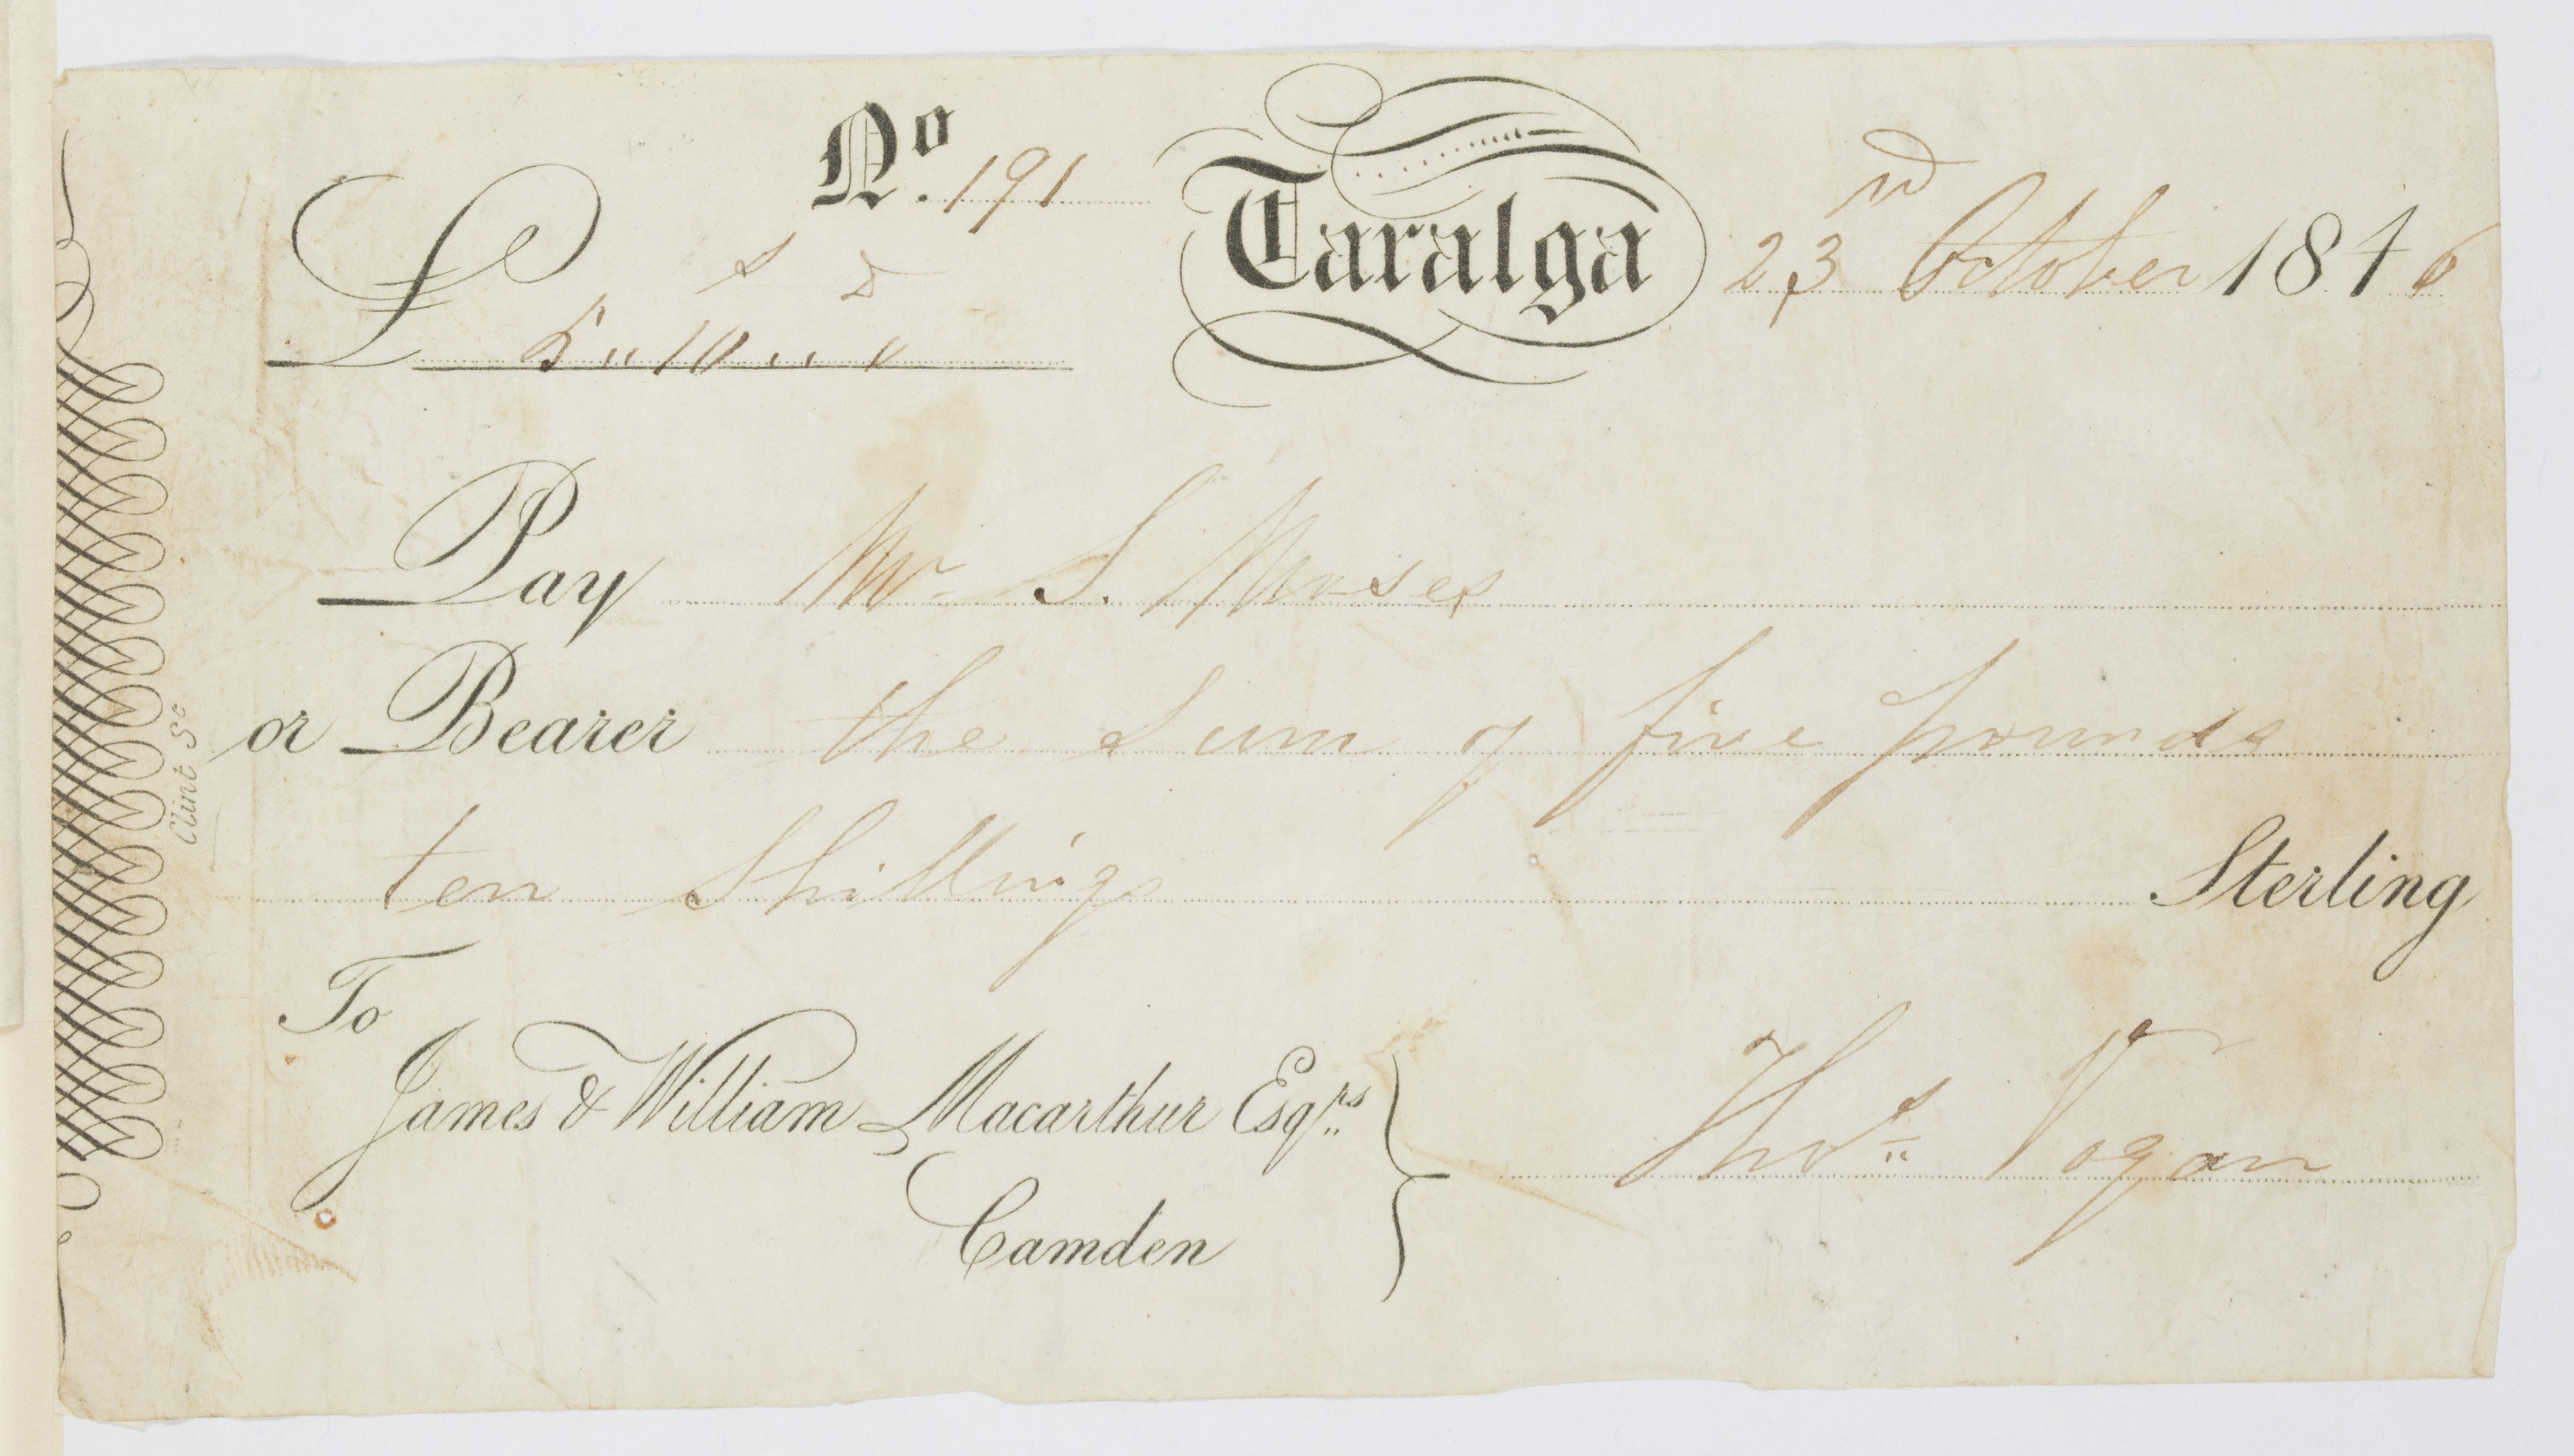 No. 191
Taralga 23rd October 1846
£ 5 s "10" d "
Pay Mr. S. Moses
or Bearer the Sum of five pounds
ten Shillings Sterling
To
James & William Macarthur Esqrs
Camden
Thos Vogan
Clint Sc